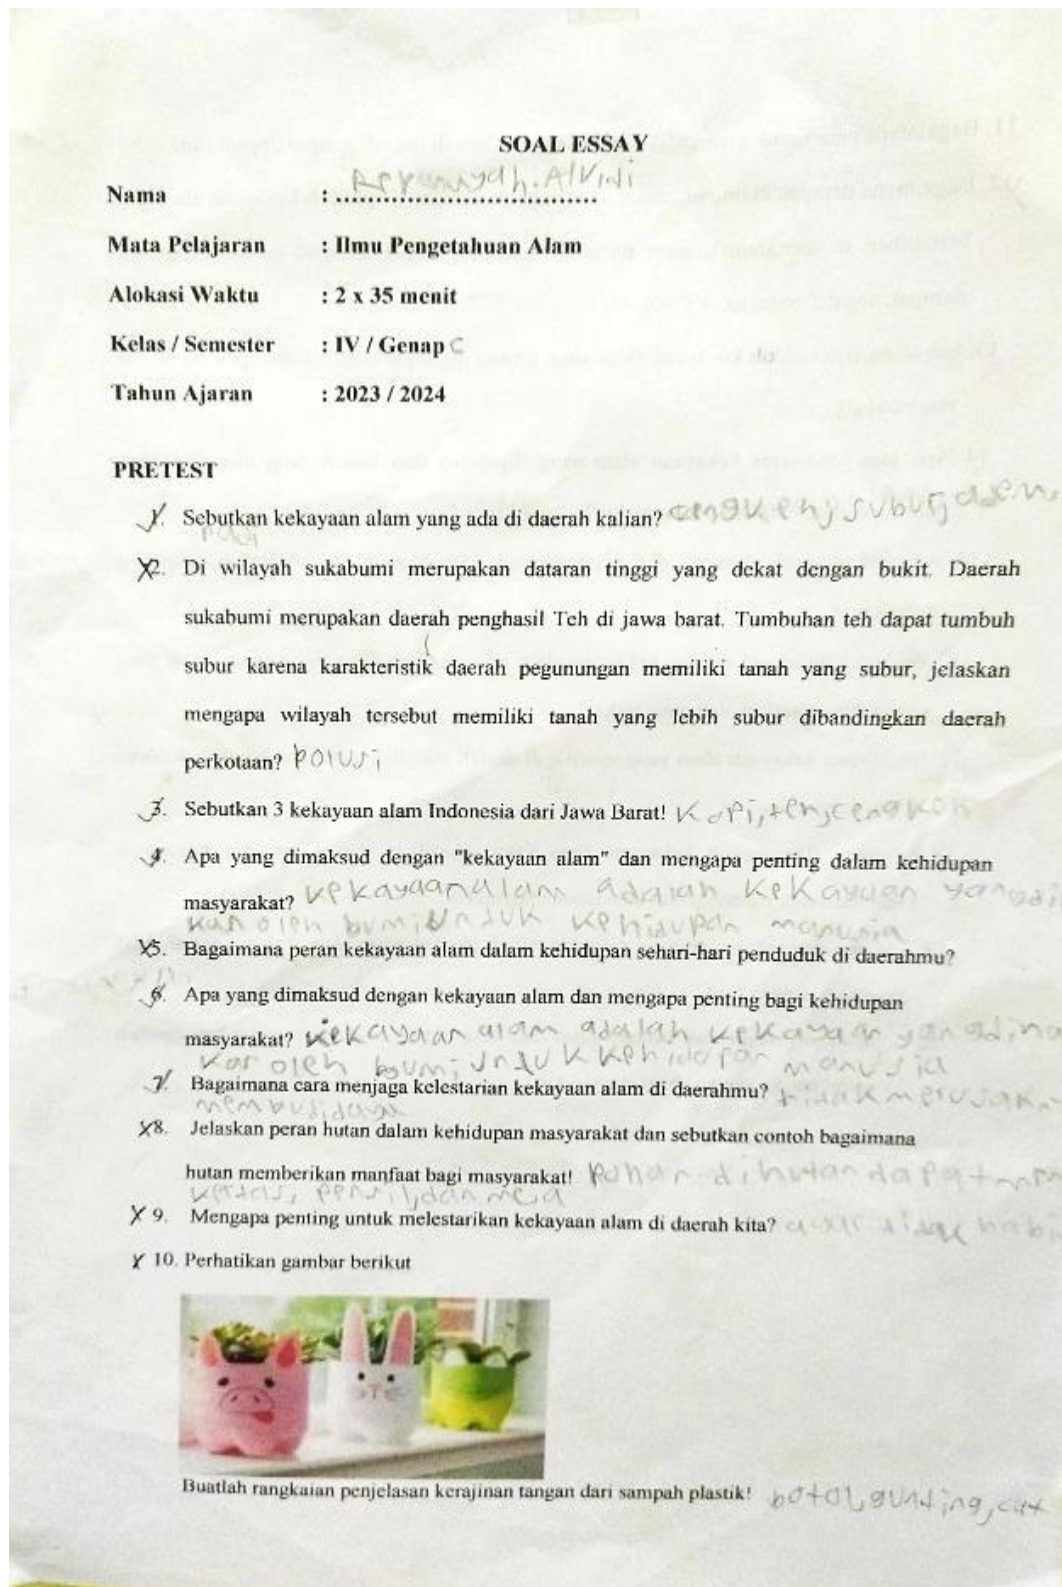 SOAL ESSAY
Nama : ..............................
Mata Pelajaran : Ilmu Pengetahuan Alam
Alokasi Waktu : 2 x 35 menit
Kelas / Semester : IV / Genap C
Tahun Ajaran : 2023 / 2024
PRETEST
1. Sebutkan kekayaan alam yang ada di daerah kalian?
padi
2. Di wilayah sukabumi merupakan dataran tinggi yang dekat dengan bukit. Daerah
sukabumi merupakan daerah penghasil Teh di jawa barat. Tumbuhan teh dapat tumbuh
subur karena karakteristik daerah pegunungan memiliki tanah yang subur, jelaskan
mengapa wilayah tersebut memiliki tanah yang lebih subur dibandingkan daerah
perkotaan? Polusi
3. Sebutkan 3 kekayaan alam Indonesia dari Jawa Barat! Kopi, teh, cengkeh
4. Apa yang dimaksud dengan "kekayaan alam" dan mengapa penting dalam kehidupan
masyarakat? kekayaan alam adalah kekayaan yang di
kan oleh bumi untuk kehidupan manusia
5. Bagaimana peran kekayaan alam dalam kehidupan sehari-hari penduduk di daerahmu?
6. Apa yang dimaksud dengan kekayaan alam dan mengapa penting bagi kehidupan
masyarakat? kekayaan alam adalah kekayaan yang
kan oleh bumi untuk kehidupan manusia
7. Bagaimana cara menjaga kelestarian kekayaan alam di daerahmu? tidak merusak
8. Jelaskan peran hutan dalam kehidupan masyarakat dan sebutkan contoh bagaimana
hutan memberikan manfaat bagi masyarakat! Pohon dihutan dapat
kertas, pensil, dan meja
9. Mengapa penting untuk melestarikan kekayaan alam di daerah kita? agar tidak habi
10. Perhatikan gambar berikut
Buatlah rangkaian penjelasan kerajinan tangan dari sampah plastik! botol, gunting, cat